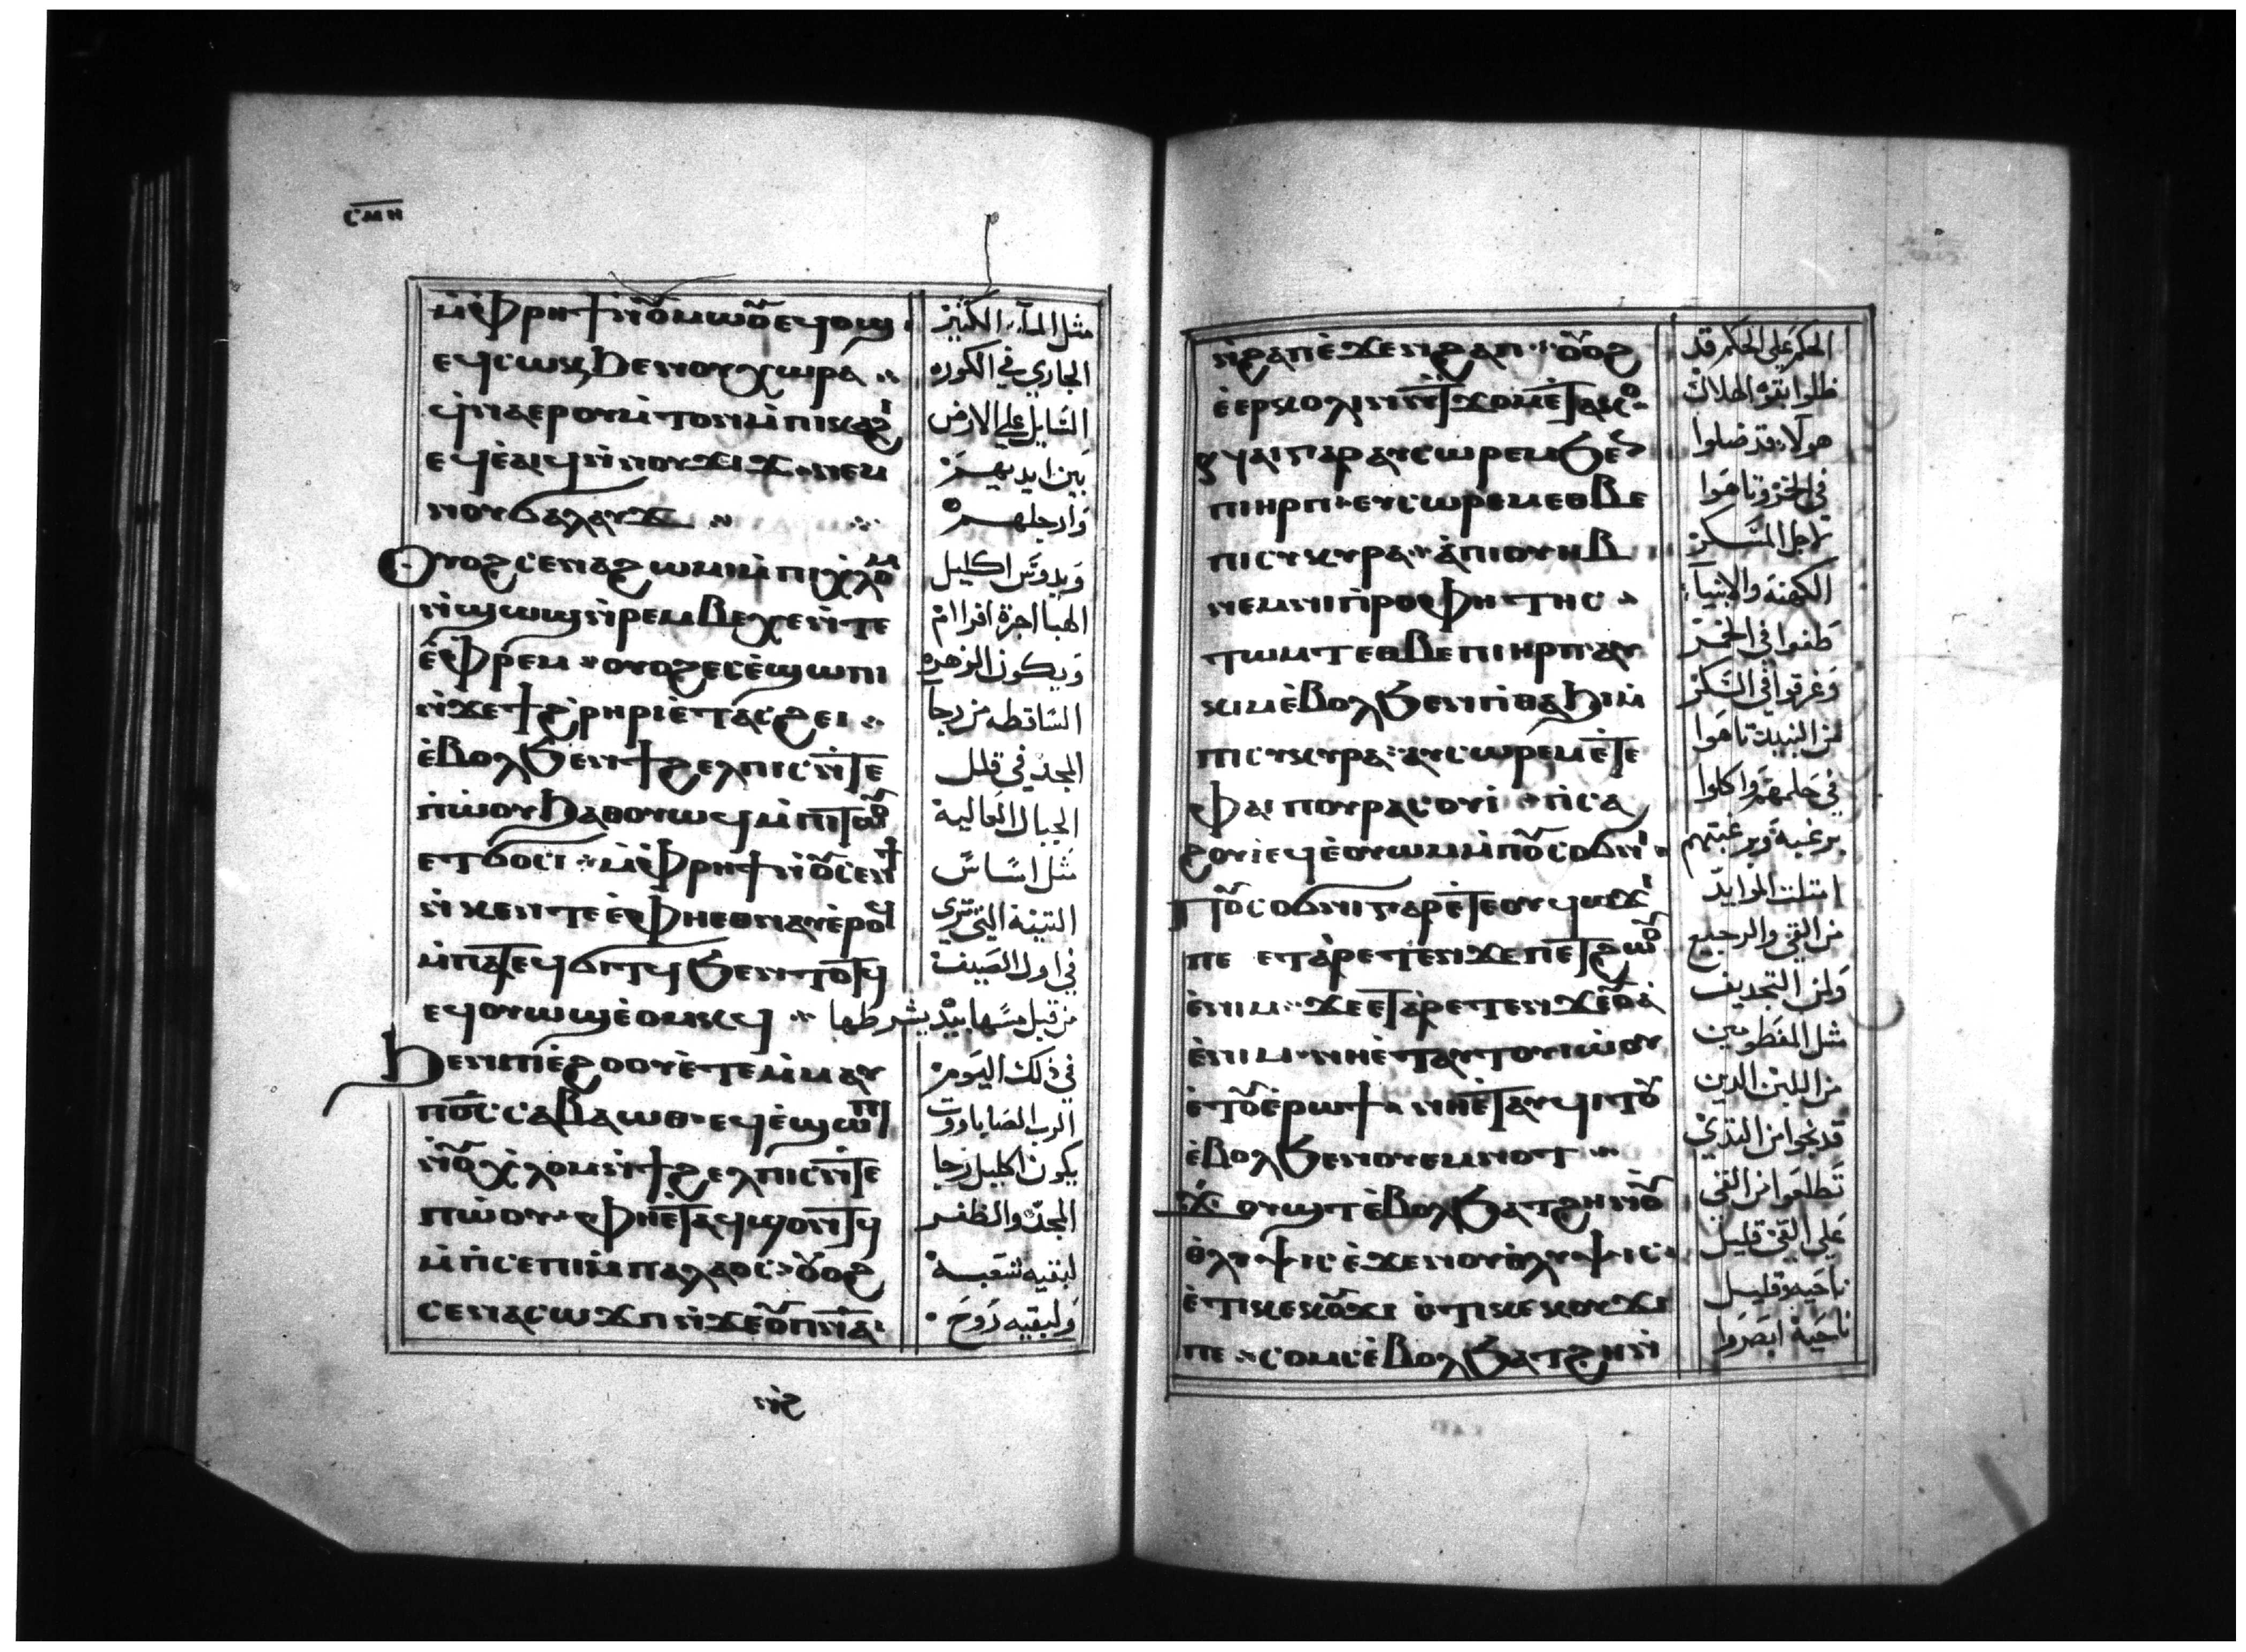 ⲥⲙⲏ
ⲙ̀ⲫⲣⲏϯ ⲛ̀ⲟⲩⲙⲱⲟⲩ ⲉϥⲟϣ
ⲉϥⲥⲱⲕ ϧⲉⲛ ⲟⲩⲭⲱⲣⲁ
ϥ̀ⲛⲁⲉⲣⲟⲩⲙ̀ⲧⲟⲛ ⲙ̀ⲡⲓⲕⲁϩⲓ
ⲉϥⲉ̀ⲁⲓϥ ⲛ̀ⲛⲟⲩϫⲓϫ ⲛⲉⲙ
ⲛⲟⲩϭⲁⲗⲁⲩϫ
Ⲟⲩⲟϩ ⲥⲉⲛⲁϩⲱⲙⲓ ⲙ̀ⲡⲓⲭⲗⲟⲙ
ⲛ̀ϣⲱϣ ⲛ̀ⲣⲉⲙⲃⲉⲭⲉ ⲛ̀ⲧⲉ
ⲉ̀ⲫⲣⲉⲙ ⲟⲩⲟϩ ⲉⲥⲉ̀ϣⲱⲡⲓ
ⲛ̀ϫⲉ ϯϩ̀ⲣⲏⲣⲓ ⲉ̀ⲧⲁⲥϩⲉⲓ
ⲉ̀ⲃⲟⲗ ϧⲉⲛ ϯϩⲉⲗⲡⲓⲥ ⲛ̀ⲧⲉ
ⲡ̀ⲱⲟⲩ ϧⲁⲑⲟⲩⲱϥ ⲙ̀ⲡⲓⲧⲱⲟⲩ
ⲉⲧϭⲟⲥⲓ ⲙ̀ⲫⲣⲏϯ ⲛ̀ⲟⲩⲥⲉⲛϯ
ⲛ̀ⲕⲉⲛⲧⲉ ⲉ̀ⲫⲏⲉⲑⲛⲁⲩ ⲉ̀ⲣⲟϥ
ⲙ̀ⲡⲁⲧⲉϥϭⲓⲧϥ ϧⲉⲛ ⲧⲟⲧϥ
ⲉϥⲟⲩⲱϣ ⲉ̀ⲟⲙⲕϥ
ϧⲉⲛ ⲡⲓⲉ̀ϩⲟⲟⲩ ⲉ̀ⲧⲉⲙ̀ⲙⲁⲩ
ⲡⲟ̅ⲥ̅ ⲥⲁⲃⲁⲱⲑ ⲉϥⲉ̀ϣⲱⲡⲓ
ⲛ̀ⲟⲩⲭ̀ⲗⲟⲙ ⲛ̀ϯϩⲉⲗⲡⲓⲥ ⲛ̀ⲧⲉ
ⲡⲱ̀ⲟⲩ ⲫⲏⲉ̀ⲧⲁϥϣⲟⲛⲧϥ
ⲙ̀ⲡ̀ⲥⲉⲡⲓ ⲙ̀ⲡⲁⲗⲁⲟⲥ ⲟⲩⲟϩ
ⲥⲉⲛⲁⲥⲱϫⲡ ⲛ̀ϫⲉ ⲟⲩⲡⲛ̅ⲁ̅
مثل المآء الكثير
الجاري في الكوره
السايل علي الارض
بين ايديهم
وارجلهم
ويدوس اكليل
الهبا اجرة افرام
ويكون الزهره
الساقطه من رجا
المجد في قلل
الجبال العالية
مثل اساس
التينة التي تري
في اول الصيف
من قبل مسها بيد يشرطها
في ذلك اليوم
الرب الصاباووت
يكون اكليل رجا
المجد والظفر
لبقيه شعبه
ولبقيه روح
ϩⲓⲛ
ⲛ̀ϩⲁⲡ ⲉ̀ϫⲉⲛ ϩⲁⲡ ⲟⲩⲟϩ
ⲉ̀ⲉⲣⲕⲟⲗⲓⲛ ⲛ̀ⲧϫⲟⲙ ⲉ̀ⲧⲁⲕⲟ
ⲛⲁⲓ ⲅⲁⲣ ⲁⲩⲥⲱⲣⲉⲙ ϧⲉⲛ
ⲡⲓⲏⲣⲡ ⲉⲩⲥⲱⲣⲉⲙ ⲉⲑⲃⲉ
ⲡⲓⲥⲩⲕⲩⲣⲁ ⲁ̀ ⲡⲓⲟⲩⲏⲃ
ⲛⲉⲙ ⲛⲓⲡ̀ⲣⲟⲫⲏⲧⲏⲥ
ⲧⲱⲙⲧ ⲉⲑⲃⲉ ⲡⲓⲏⲣⲡ ⲁⲩ
ⲕⲓⲙ ⲉ̀ⲃⲟⲗ ϧⲉⲛ ⲡⲓⲑⲁϧⲓ ⲙ̀
ⲡⲓⲥⲩⲕⲩⲣⲁ ⲁⲩⲥⲱⲣⲉⲙ ⲉ̀ⲧⲉ
ⲫⲁⲓ ⲡⲟⲩⲣⲁⲥⲟⲩⲓ ⲡ̀ⲥⲁ
ϩⲟⲩⲓ ⲉϥⲉ̀ⲟⲩⲱⲙ ⲙ̀ⲡⲟⲩⲥⲟϭⲛⲓ
ⲡⲟⲩⲥⲟϭⲛⲓ ⲅⲁⲣ ⲉ̀ⲧⲉ ⲟⲩϥⲱϫⲓ
ⲡⲉ ⲉⲧⲁ̀ⲣⲉⲧⲉⲛϫⲉ ⲡⲉⲧϩⲱⲟⲩ
ⲉ̀ⲛⲓⲙ ϫⲉ ⲉⲧⲁ̀ⲣⲉⲧⲉⲛϫⲉ ⲟⲩⲁ̀
ⲉ̀ⲛⲓⲙ ⲛⲏⲉ̀ⲧⲁⲩⲧⲟⲩⲓⲱ̀ⲟⲩ
ⲉ̀ⲧⲟⲩⲉ̀ⲣⲱϯ ⲛⲏⲉ̀ⲧⲁⲩϥⲓⲧⲟⲩ
ⲉ̀ⲃⲟⲗ ϧⲉⲛ ⲟⲩⲉⲙⲛⲟⲧ
ϫⲟⲩϣⲧ ⲉ̀ⲃⲟⲗ ϧⲁⲧϩⲏ ⲛ̀ⲟⲩ
ⲑⲗⲩⲯⲓⲥ ⲉ̀ϫⲉⲛ ⲟⲩⲑ̀ⲗⲩⲯⲓⲥ
ⲉ̀ⲧⲓ ⲕⲉⲕⲟⲩϫⲓ ⲉ̀ⲧⲓ ⲕⲉⲕⲟⲩϫⲓ
ⲡⲉ ⲥⲟⲙⲥ ⲉ̀ⲃⲟⲗ ϧⲁⲧϩⲏ ⲛ̀
الحكم علي الحكم قد
ظلوا بقوه الهلاك
هولاء قد ضلوا
في الخمر وتاهوا
لاجل المسكر
الكهنة والانبيآء
طغوا في الخمر
وغرقوا في السكر
من النبيد تاهوا
في حلمهم واكلوا
برغبة وبرغبتهم
امتلت الموايد
من القي والرجيع
ولمن التجديف
مثل المفطومين
من اللبن الدين
قد نجوا من الثدي
تطلعوا من القي
علي القي قليل
ناحيه وقليل
ناحية ابصروا